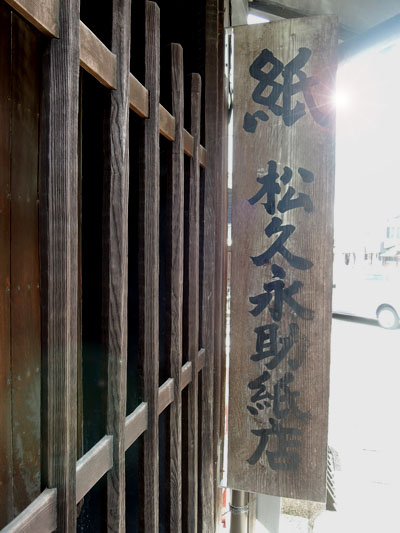 紙
松久永助紙店